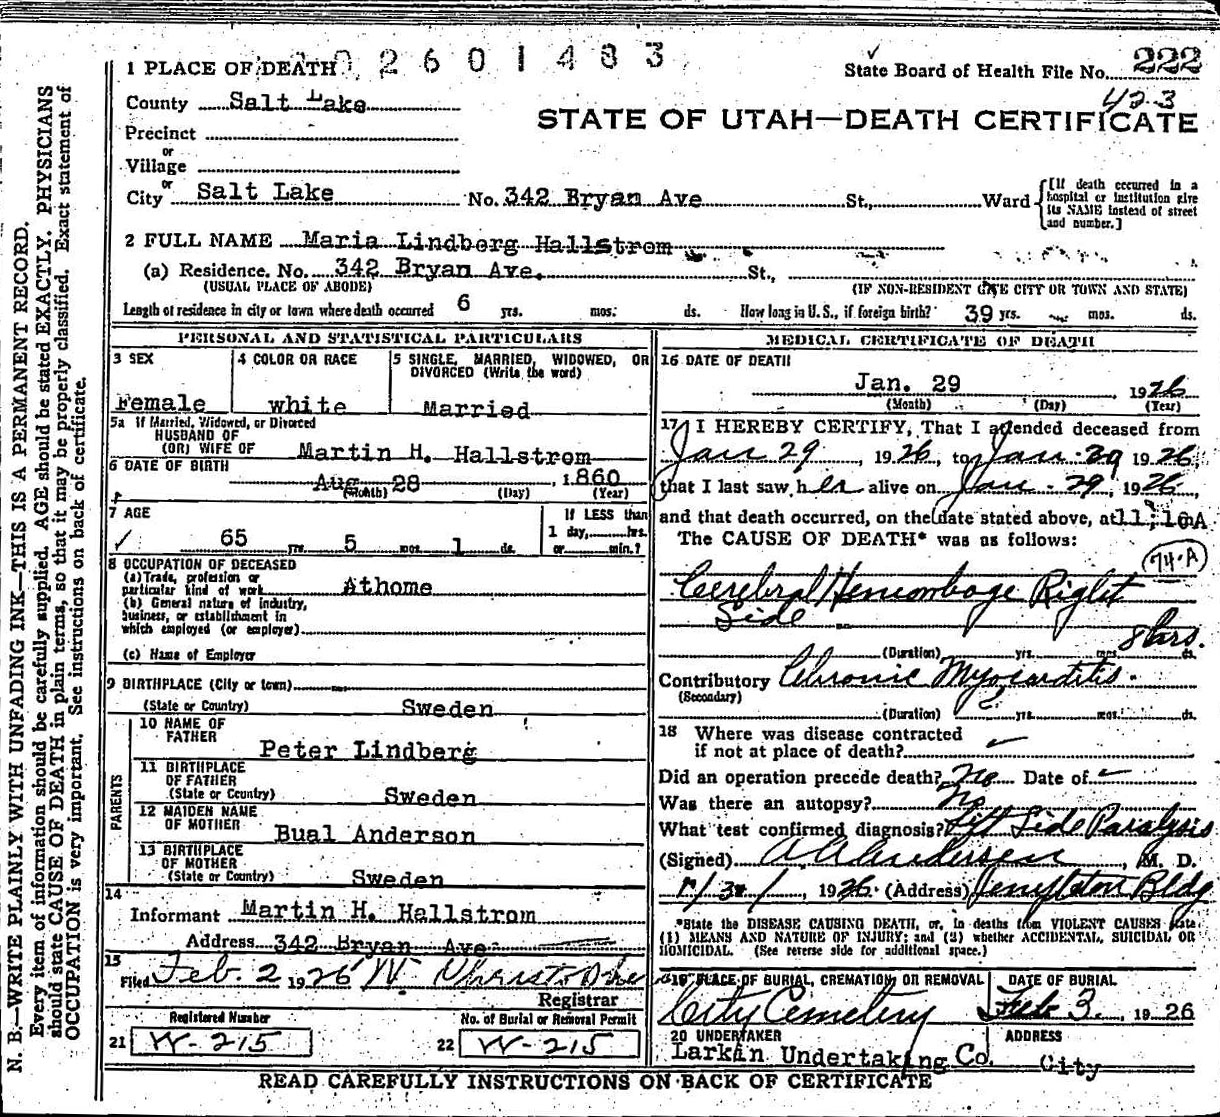 N. B.—WRITE PLAINLY WITH UNFADING INK—THIS IS A PERMANENT RECORD.
Every item of information should be carefully supplied. AGE should be stated EXACTLY. PHYSICIANS
should state CAUSE OF DEATH in plain terms, so that it may be properly classified. Exact statement of
OCCUPATION is very important. See instructions on back of certificate.
2601483
State Board of Health File No. 222
423
STATE OF UTAH—DEATH CERTIFICATE
1 PLACE OF DEATH
County Salt Lake
Precinct
or
Village
or
City Salt Lake No. 342 Bryan Ave St., Ward
[If death occurred in a
hospital or institution give
its NAME instead of street
and number.]
2 FULL NAME Maria Lindberg Hallstrom
(a) Residence. No. 342 Bryan Ave. St.,
(USUAL PLACE OF ABODE) (IF NON-RESIDENT GIVE CITY OR TOWN AND STATE)
Length of residence in city or town where death occurred 6 yrs. mos. ds. How long in U. S., if foreign birth? 39 yrs. mos. ds.
PERSONAL AND STATISTICAL PARTICULARS
3 SEX
Female
4 COLOR OR RACE
white
5 SINGLE, MARRIED, WIDOWED, OR
DIVORCED (Write the word)
Married
5a If Married, Widowed, or Divorced
HUSBAND OF
(OR) WIFE OF Martin H. Hallstrom
6 DATE OF BIRTH
Aug 28, 1860
(Month) (Day) (Year)
7 AGE
65 yrs. 5 mos. 1 ds.
If LESS than
1 day, hrs.
or min.?
8 OCCUPATION OF DECEASED
(a) Trade, profession or
particular kind of work Athome
(b) General nature of industry,
business, or establishment in
which employed (or employer)
(c) Name of Employer
9 BIRTHPLACE (City or town)
(State or Country) Sweden
PARENTS
10 NAME OF
FATHER Peter Lindberg
11 BIRTHPLACE
OF FATHER
(State or Country) Sweden
12 MAIDEN NAME
OF MOTHER Bual Anderson
13 BIRTHPLACE
OF MOTHER
(State or Country) Sweden
14
Informant Martin H. Hallstrom
Address 342 Bryan Ave
15
Filed Feb. 2 1926 W
Registrar
Registered Number No. of Burial or Removal Permit
21 W-215 22 W-215
MEDICAL CERTIFICATE OF DEATH
16 DATE OF DEATH
Jan. 29, 1926
(Month) (Day) (Year)
17 I HEREBY CERTIFY, That I attended deceased from
Jan 29, 1926, to Jan. 29 1926,
that I last saw her alive on Jan. 29, 1926,
and that death occurred, on the date stated above, at 11;10A
The CAUSE OF DEATH* was as follows:
74-A
Cerebral Hemorrhage Right
Side
8 hrs.
(Duration) yrs. mos. ds.
Contributory Chronic Myocarditis.
(Secondary)
(Duration) ? yrs. mos. ds.
18 Where was disease contracted
if not at place of death?
Did an operation precede death? No Date of
Was there an autopsy? No
What test confirmed diagnosis? Left Side Paralysis
(Signed) Andersen, M. D.
1926. (Address) Templeton Bldg
*State the DISEASE CAUSING DEATH, or, in deaths from VIOLENT CAUSES state
(1) MEANS AND NATURE OF INJURY; and (2) whether ACCIDENTAL, SUICIDAL OR
HOMICIDAL. (See reverse side for additional space.)
19 PLACE OF BURIAL, CREMATION OR REMOVAL
City Cemetery
DATE OF BURIAL
Feb 3, 1926
20 UNDERTAKER
Larkin Undertaking Co.
ADDRESS
City
READ CAREFULLY INSTRUCTIONS ON BACK OF CERTIFICATE